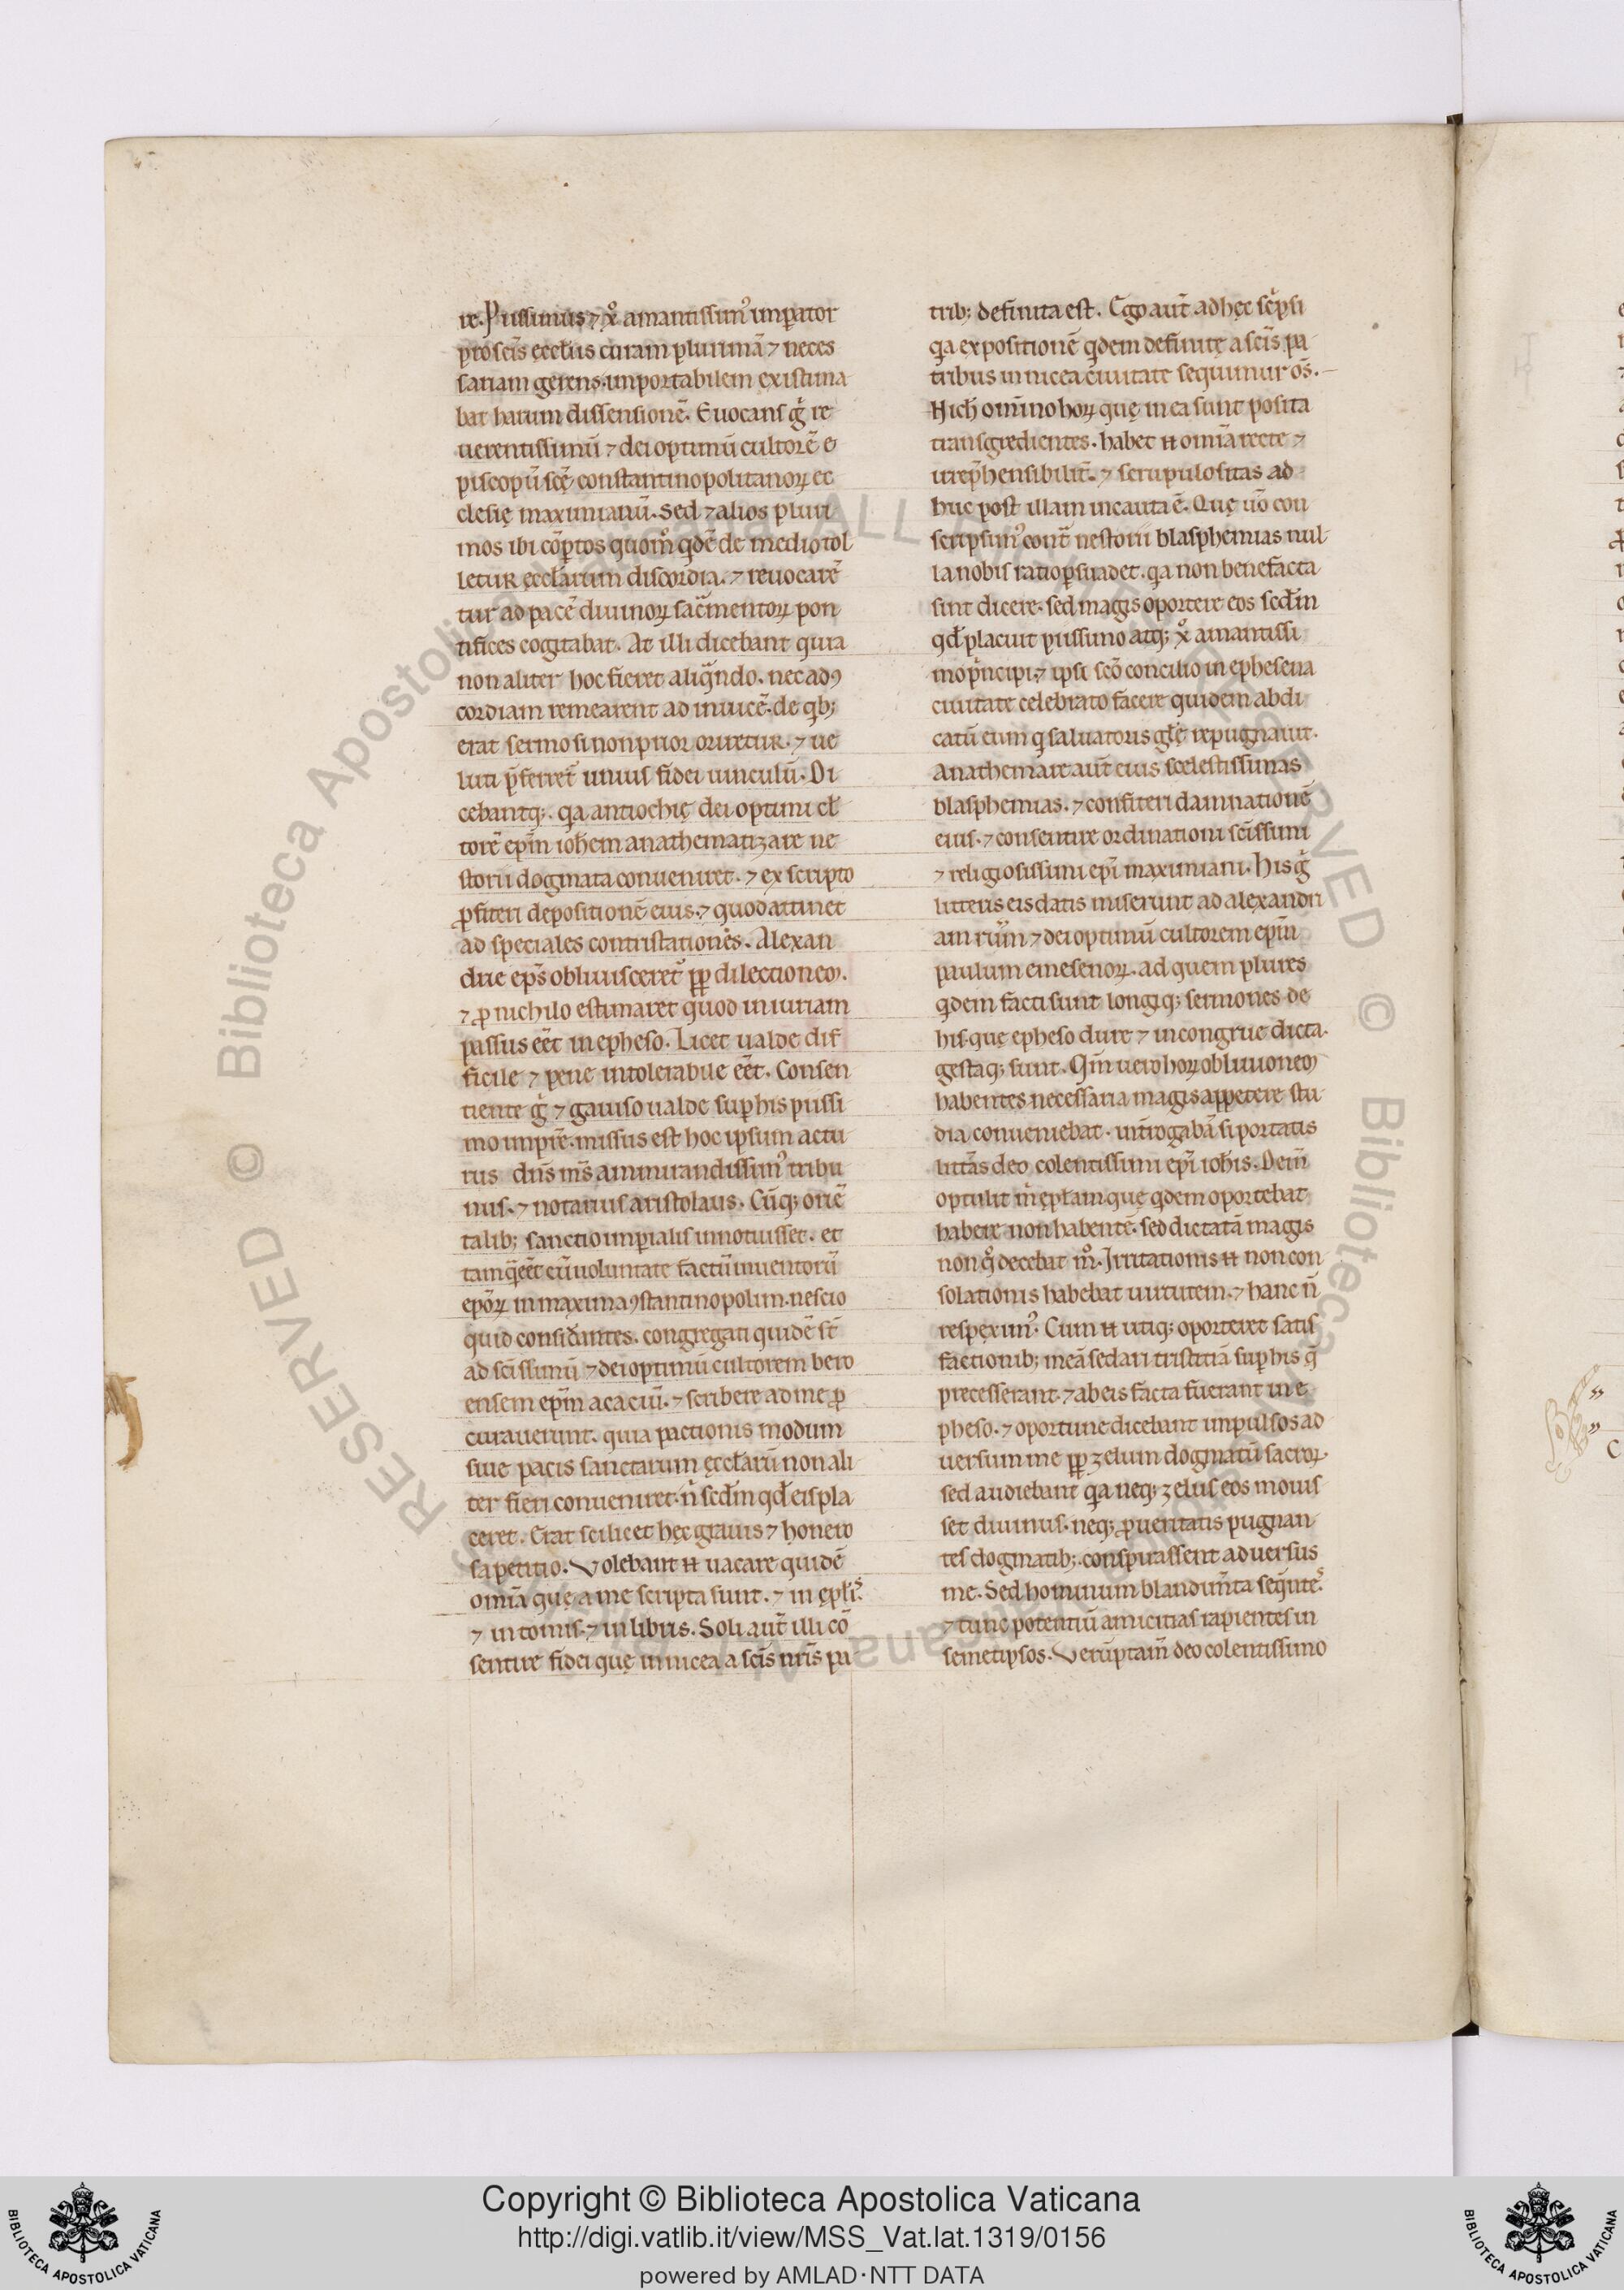 re. Piissimus ⁊ xp̄o amantissim᾽ imꝑator
pro sc̄is ęcct̄iis curam plurimā ⁊ neces
sariam gerens. inportabilem existima
bat harum dissensionē. Euocans g̊ re
uerentissimū ⁊ dei optimū cultorē e
piscopū sc̄ę constantinopolitanoꝝ ec
clesię maximianū. Sed ⁊ alios pluri
mos ibi cōꝑtos quom̊ qdē de medio tol
letur ęcct̄arum discordia. ⁊ reuocarē
tur ad pacē diuinoꝝ sac̄mentoꝝ pon
tifices cogitabat. At illi dicebant quia
non aliter hoc fieret aliqn̄do. nec ad ꝯ
cordiam remearent ad inuicē. de qb;
erat sermo si non prior oriretur. ⁊ ue
luti p̄ferret᾽ unius fidei uinculū. Di
cebantq;. qa antiochię dei optimi cl̄
torē ep̄m ioh̄em anathematizare ne
storii dogmata conueniret. ⁊ ex scripto
ꝓfiteri depositionē eius. ⁊ quod attinet
ad speciales contristationes. Alexan
drie ep̄s obliuisceret᾽ ꝓꝑ dilectionem.
⁊ ꝓ nichilo estimaret quod iniuriam
passus eēt in epheso. Licet ualde dif
ficile ⁊ pene intolerabile eēt. Consen
tiente g̊ ⁊ gauiso ualde suꝑ his piissi
mo impr̄e. missus est hoc ipsum actu
rus dn̄s m̄s ammirandissim᾽ tribu
nus. ⁊ notarius aristolaus. Cūq; oriē
talib; sanctio imꝑialis innotuisset. et
tamq̄ eēt cū uoluntate factū inuentorū
ep̄oꝝ in maxima ꝯstantinopolim. nescio
quid consid̄antes. congregati quidē st̄
ad sc̄issimū ⁊ dei optimū cultorem bero
ensem ep̄m acaciū. ⁊ scribere ad me ꝓ
curauerunt. quia pactionis modum
siue pacis sanctarum ęcct̄arū non ali
ter fieri conueniret. n̄ sed̄m qd̄ eis pla
ceret. Erat scilicet hęc grauis ⁊ honero
sa petitio. Volebant n̄ uacare quidē
omīa quę a me scripta sunt. ⁊ in ęptis̄.
⁊ in tomis. ⁊ in libris. Soli aut̄ illi cō
sentire fidei quę in nicea a sc̄is nr̄is pa
trib; definita est. Ego aut̄ ad hęc sc̄psi
qa expositionē qdem definitę a sc̄is pa
tribus in nicea ciuitate sequimur os̄.
Nich̄ omnino hoꝝ quę in ea sunt posita
transgredientes. habet n̄ omīa recte ⁊
irrep̄hensibilit̄. ⁊ scrupulositas ad
huc post illam incauta ē. Quę uō con
scripsim᾽ cont̄ nestorii blasphemias nul
la nobis ratio ꝑsuadet. qa non bene facta
sint dicere. sed magis oportere eos sed̄m
qd̄ placuit piissimo atq; xp̄o amantissi
mo p̄ncipi. ⁊ ipsi sc̄o concilio in ephesena
ciuitate celebrato facere quidem abdi
catū eum q saluatoris gl̄ę repugnauit.
Anathemare aut̄ eius scelestissimas
blasphemias. ⁊ confiteri damnationē
eius. ⁊ consentire ordinationi sc̄issimi
⁊ religiosissimi ep̄i maximiani. His g̊
litteris eis datis miserunt ad alexandri
am rūm ⁊ dei optimū cultorem ep̄m
paulum emesenoꝝ. ad quem plures
qdem facti sunt longiq; sermones de
his quę epheso dure ⁊ incongrue dicta.
gestaq; sunt. Qm̄ uero hoꝝ obliuionem
habentes necessaria magis appetere stu
dia conueniebat. int̄rogabā si portatis
litt̄as deo colentissimi ep̄i ioh̄is. Dein̄
optulit m̄ ępłam quę qdem oportebat
habere non habentē. sed dictatā magis
non q̊ decebat m̊. Irritationis n̄ non con
solationis habebat uirtutem. ⁊ hanc n̄
respexim᾽. Cum n̄ utiq; oporteret satis
factionib; meā sedari tristitiā suꝑ his q̄
precesserant. ⁊ ab eis facta fuerant in e
pheso. ⁊ oportune dicebant impulsos ad
uersum me ꝓꝑ zelum dogmatū sacroꝝ.
sed audiebant qa neq; zelus eos mouis
set diuinus. neq; ꝓ ueritatis pugnan
tes dogmatib;. conspirassent aduersus
me. Sed hominum blandim̄ta seqn̄tes.
⁊ tunc potentiū amicitias rapientes in
semetipsos. Verūptam̄ deo colentissimo
Copyright © Biblioteca Apostolica Vaticana
http://digi.vatlib.it/view/MSS_Vat.lat.1319/0156
powered by AMLAD·NTT DATA